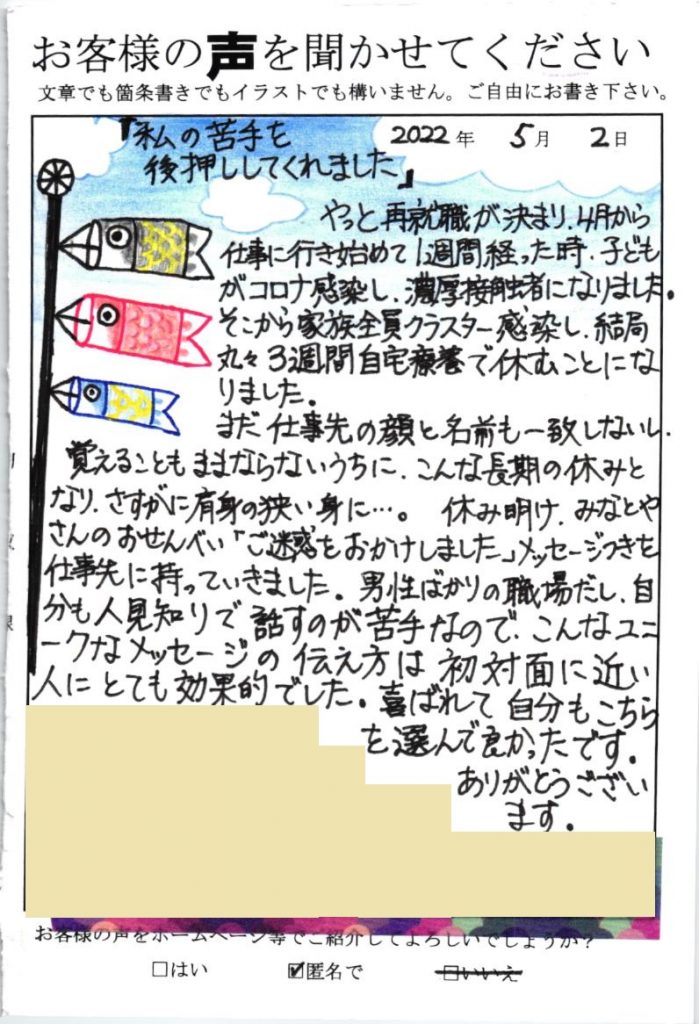 お客様の声を聞かせてください
文章でも箇条書きでもイラストでも構いません。ご自由にお書き下さい。
2022年 5月 2日
「私の苦手を
後押ししてくれました」
やっと再就職が決まり、4月から
仕事に行き始めて1週間経った時、子ども
がコロナ感染し、濃厚接触者になりました。
そこから家族全員クラスター感染し、結局
丸々3週間自宅療養で休むことにな
りました。
まだ仕事先の顔と名前も一致しないし、
覚えることもままならないうちに、こんな長期の休みと
なり、さすがに肩身の狭い身に…。 休み明け、みなとや
さんのおせんべい「ご迷惑をおかけしました」メッセージつきを
仕事先に持っていきました。男性ばかりの職場だし、自
分も人見知りで話すのが苦手なので、こんなユニ
ークなメッセージの伝え方は初対面に近い
人にとても効果的でした。喜ばれて自分もこちら
を選んで良かったです。
ありがとうござい
ます。
お客様の声をホームページ等でご紹介してよろしいでしょうか？
□はい ☑匿名で □いいえ